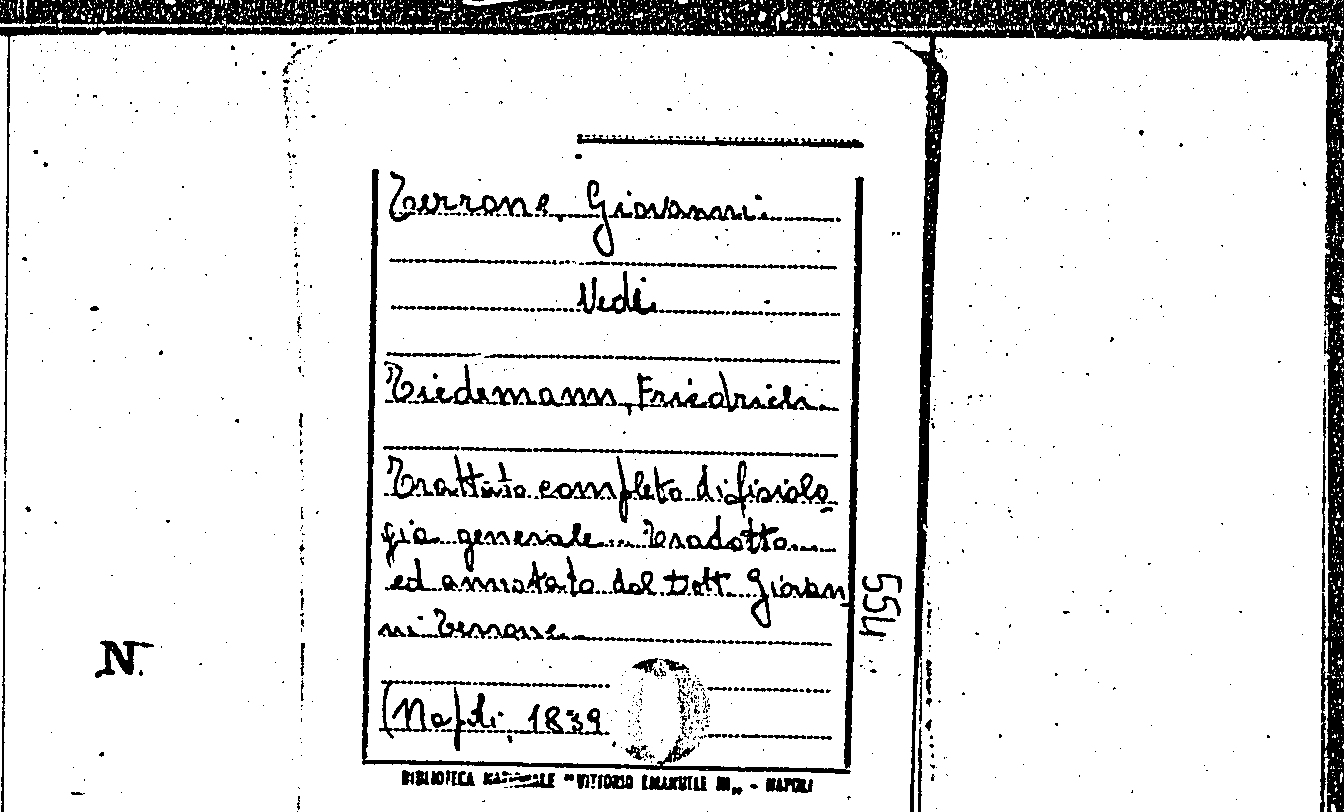 Terrone, Giovanni.
Vedi
Tiedemann, Friedrich.
Trattato completo di fisiolo
gia generale... Tradotto...
ed annotato dal Dott. Giovan
ni Terrone.
554
N.
(Napoli, 1839
BIBLIOTECA NAZIONALE "VITTORIO EMANUELE III" - NAPOLI